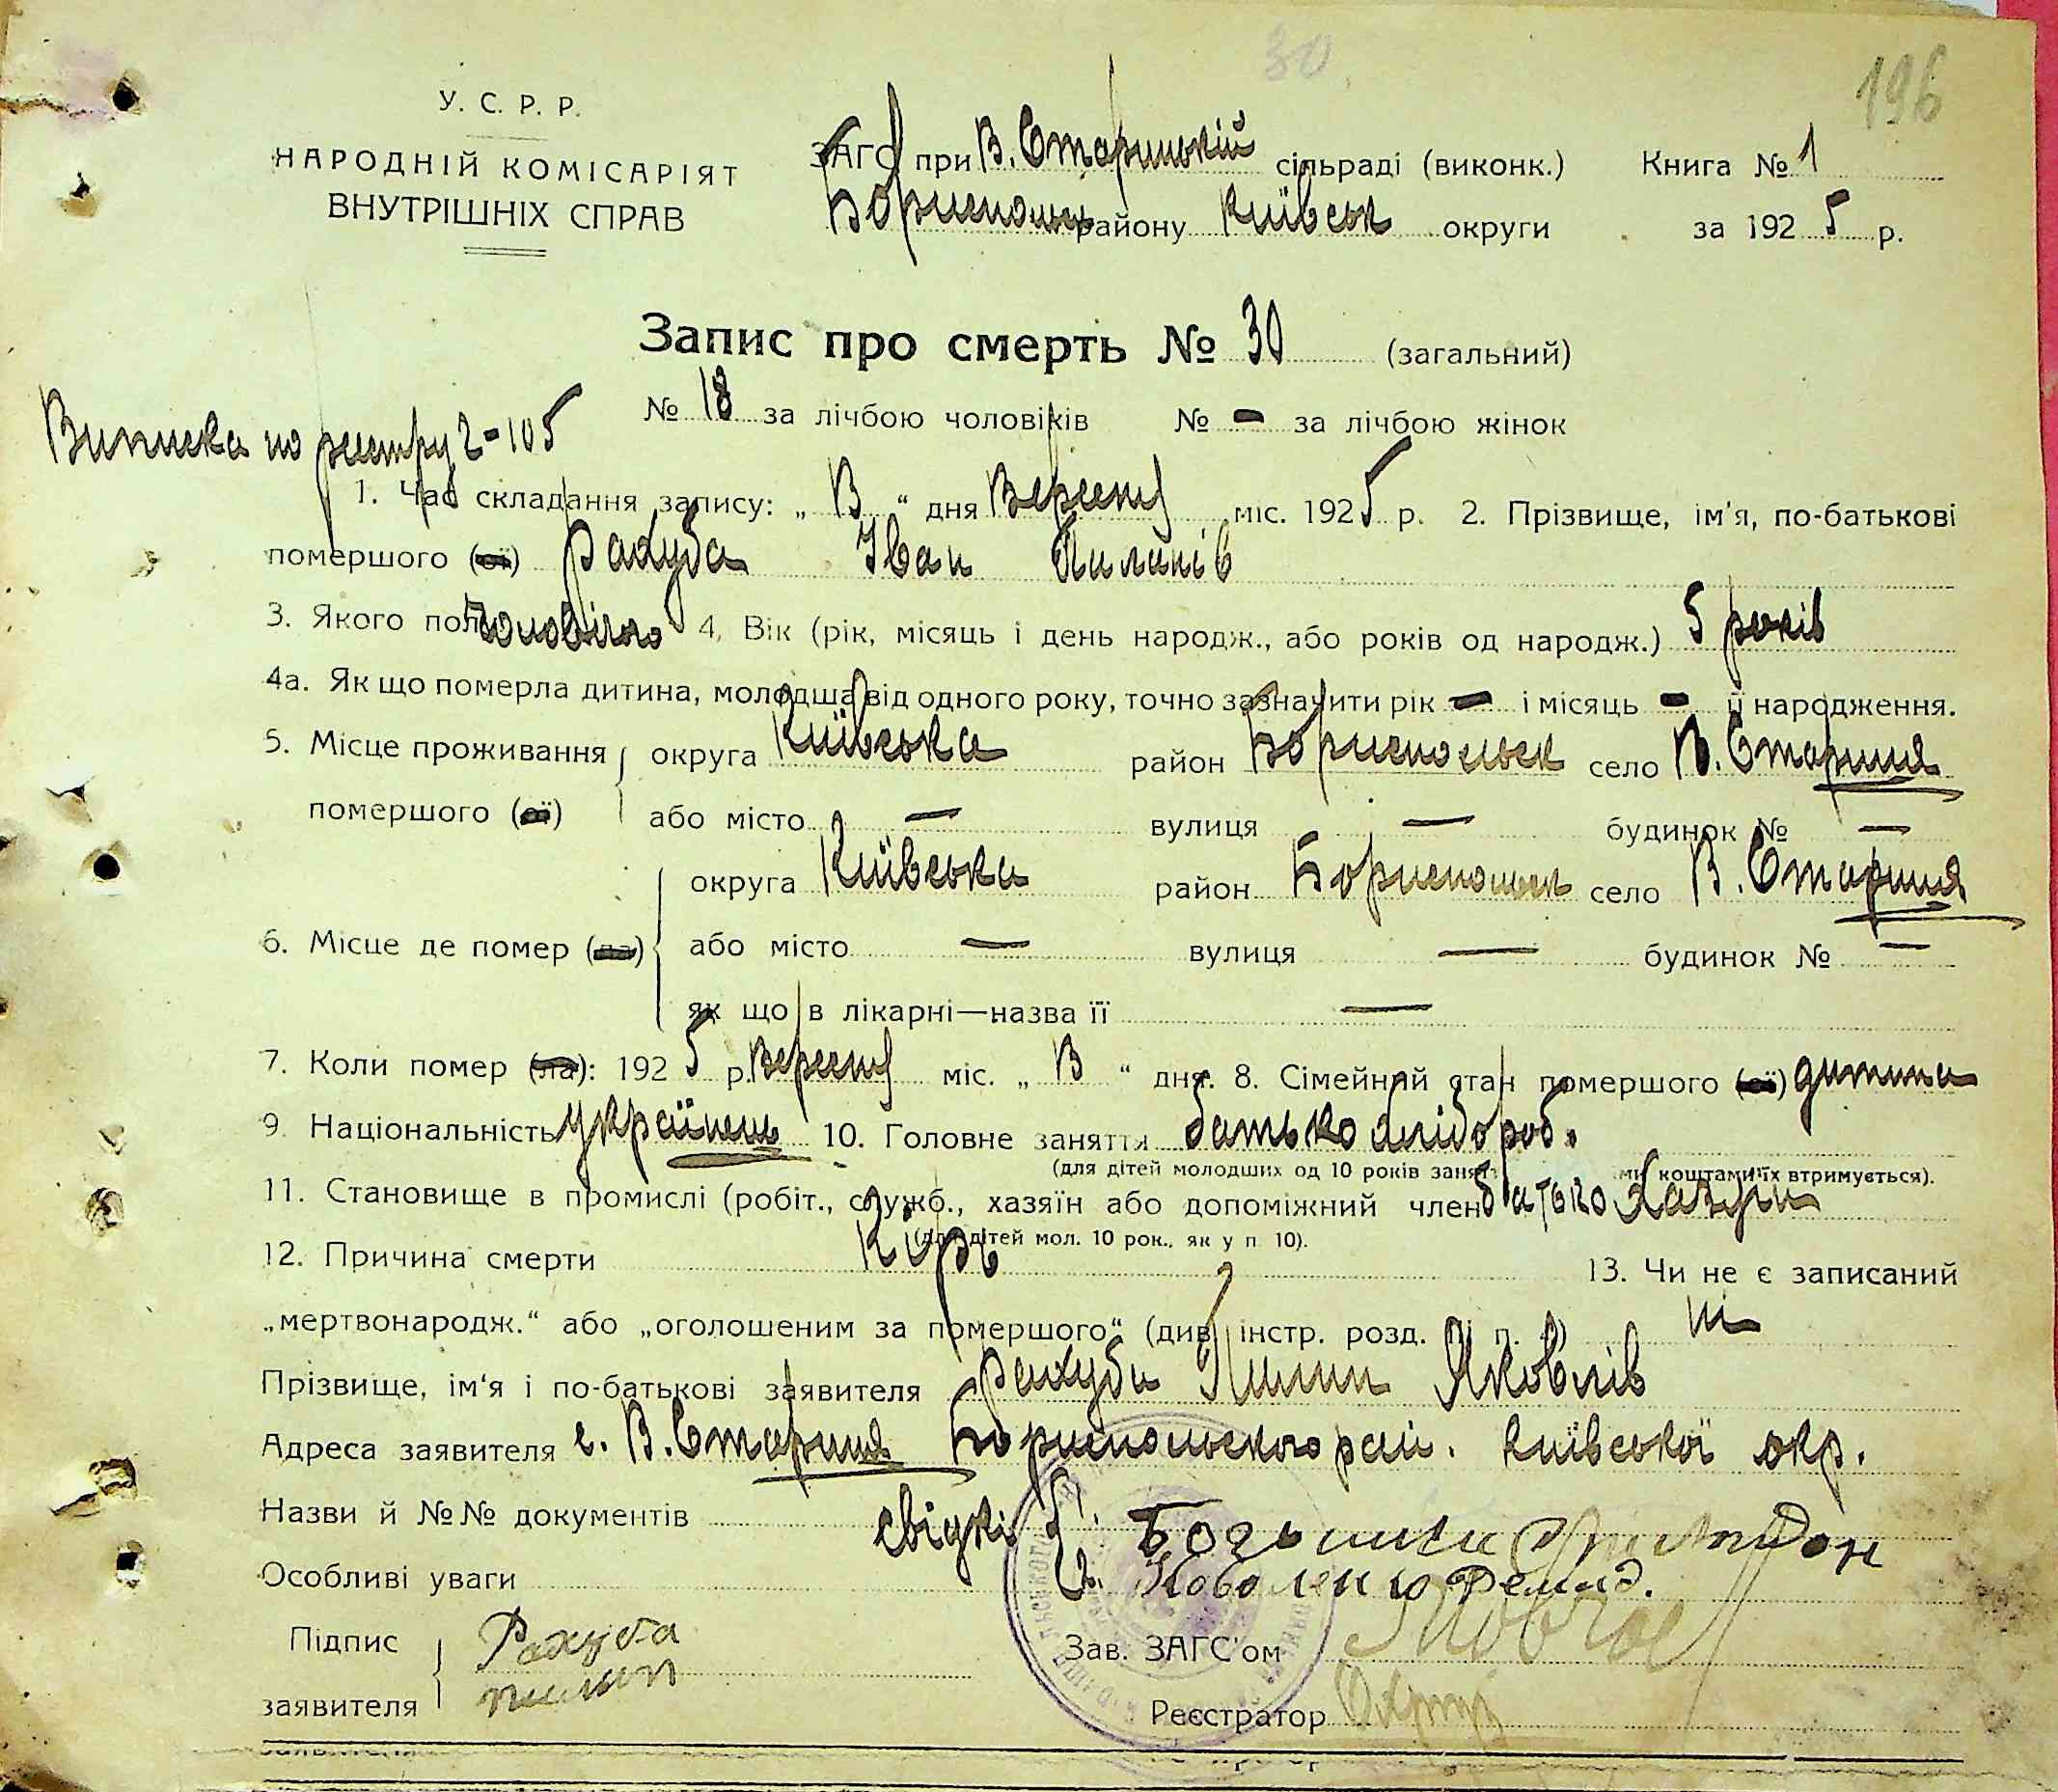 30
196
У. С. Р. Р.
НАРОДНІЙ КОМІСАРІЯТ
ВНУТРІШНІХ СПРАВ
ЗАГС при В. Старицькій сільраді (виконк.) Книга № 1
Бориспольск району Київськ округи за 1925 р.
Запис про смерть № 30 (загальний)
№ 18 за лічбою чоловіків № – за лічбою жінок
Виписка по реєстру 2-105
1. Час складання запису: „ " дня Вересня міс. 1925 р. 2. Прізвище, ім'я, по-батькові
помершого (ої) Рахуба Іван Пилипів
3. Якого полу чоловічого 4. Вік (рік, місяць і день народж., або років од народж.) 5 років
4а. Як що померла дитина, молодша від одного року, точно зазначити рік – і місяць – її народження.
5. Місце проживання округа Київська район Бориспольск село В. Стариця
помершого (ої) або місто — вулиця — будинок № —
округа Київська район Бориспольск село В. Стариця
6. Місце де помер (ла) або місто — вулиця — будинок № —
як що в лікарні—назва її —
7. Коли помер (ла): 1925 р. Вересня міс. „ " дня. 8. Сімейний стан помершого (ої) дитина
9. Національність українець 10. Головне заняття батько хлібороб.
(для дітей молодших од 10 років занят ми коштами їх втримується).
11. Становище в промислі (робіт., служб., хазяїн або допоміжний член батько хазяїн
(для дітей мол. 10 рок., як у п 10).
12. Причина смерти Кір 13. Чи не є записаний
„мертвонародж." або „оголошеним за помершого" (див. інстр. розд. п. ) ні
Прізвище, ім'я і по-батькові заявителя Рахуба Пилип Яковлів
Адреса заявителя с. В. Стариця Бориспольского рай. Київської окр.
Назви й №№ документів свідки 1.
Особливі уваги 2. Коваленко Демид.
Підпис Рахуба
заявителя пилип
Зав. ЗАГС'ом
Реєстратор